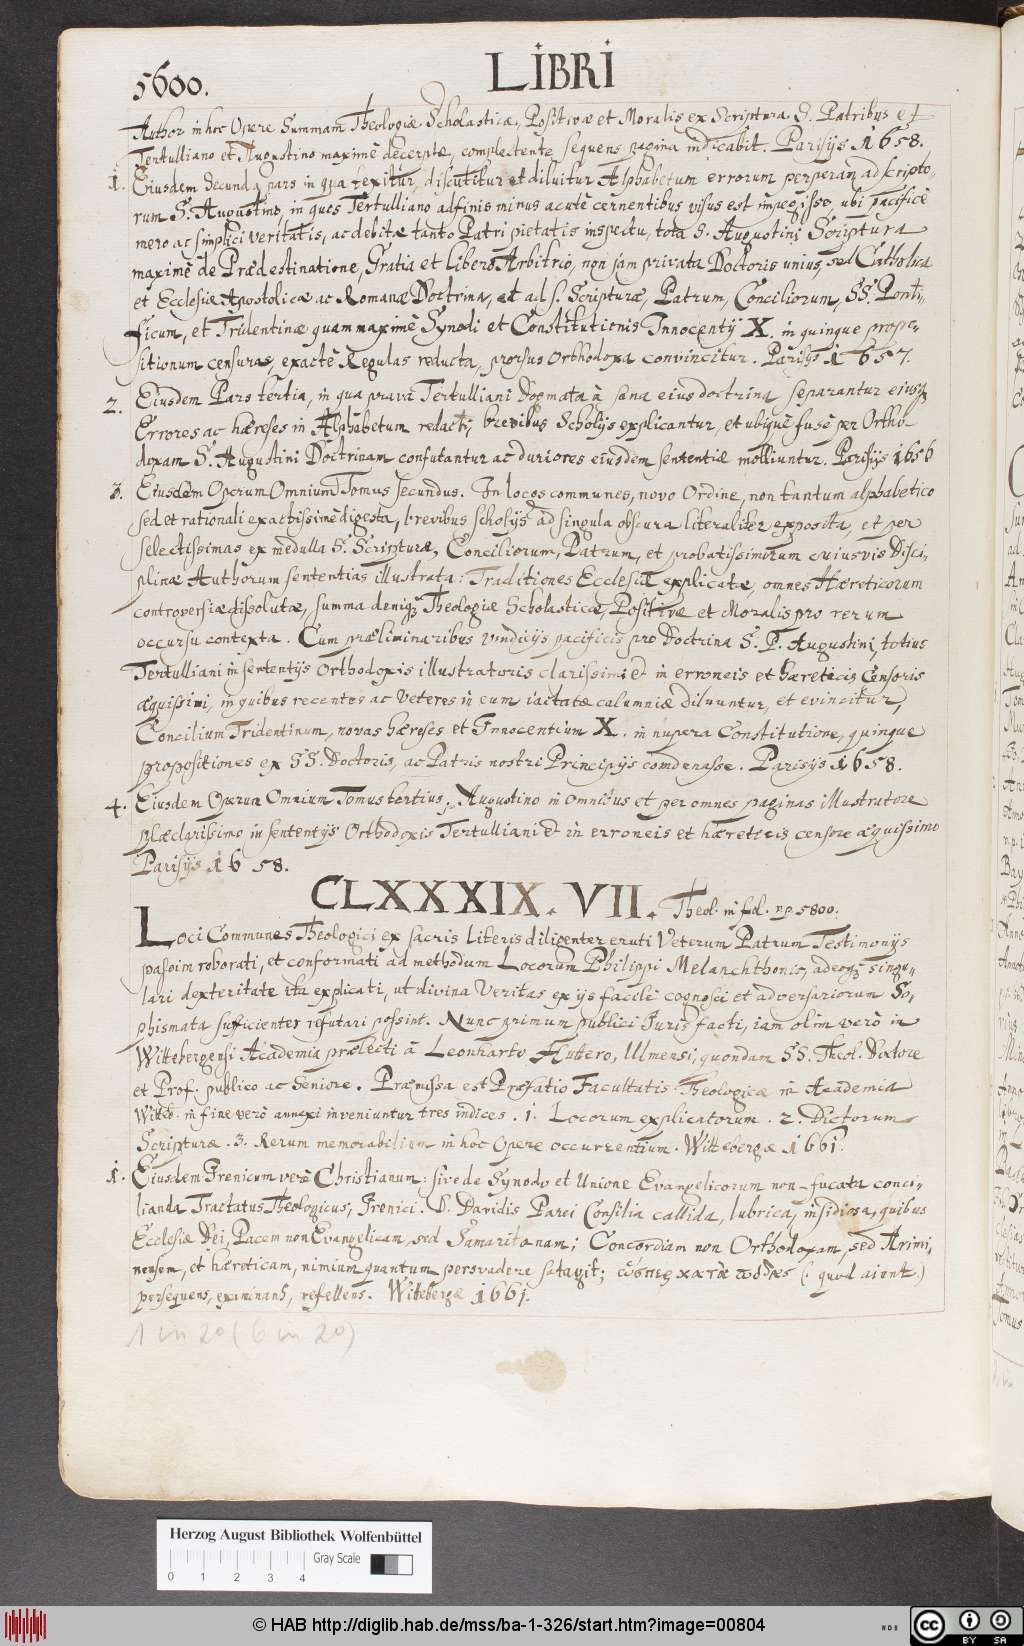 5600.
LIBRI
Author in hoc Opere Summam Theologiæ Scholasticæ, Positivæ et Moralis ex Scriptura S. Patribus et
Tertulliano et Augustino maximè decerptæ, complectente sequens pagina indicabit. Parisijs 1658.
1. Eiusdem secunda pars in qua texitur, discutitur et diluitur Alphabetum errorum perperam adscripto-
rum S. Augustino, in quos Tertulliano adfinis minus acutè cernentibus visus est impegisse, ubi pacificè
mero ac simplici veritatis, ac debitæ tanto Patri pietatis inspectu, tota S. Augustini Scriptura
maximè de Prædestinatione, Gratia et Libero Arbitrio, non jam privata Doctoris unius, sed Catholica
et Ecclesiæ Apostolicæ ac Romanæ Doctrina, et ad S. Scripturæ, Patrum, Conciliorum, SS. Ponti-
ficum, et Tridentinæ quam maximè Synodi et Constitutionis Innocentij X. in quinque propo-
sitionum censuras, exactè Regulas redacta, prorsus Orthodoxa convincitur. Parisijs 1657.
2. Eiusdem Pars tertia, in qua prava Tertulliani Dogmata à sana eius doctrina separantur eiusq;
Errores ac hæreses in Alphabetum redacti, brevibus Scholijs explicantur, et ubique fusè per Ortho-
doxam S. Augustini Doctrinam confutantur ac duriores eiusdem sententiæ molliuntur. Parisijs 1656
3. Eiusdem Operum Omnium Tomus secundus. In locos communes, novo Ordine, non tantum alphabetico
sed et rationali exactissimè digesta, brevibus scholijs ad singula obscura literaliter exposita, et per
selectissimas ex medulla S. Scripturæ, Conciliorum, Patrum, et probatissimorum cujusvis Disci-
plinæ Authorum sententias illustrata: Traditiones Ecclesiæ explicatæ, omnes Hæreticorum
controversiæ dissolutæ, summa deniq; Theologiæ Scholasticæ, Positivæ et Moralis pro rerum
occursu contexta. Cum præliminaribus vindicijs pacificis pro Doctrina S. P. Augustini, totius
Tertulliani in sententijs Orthodoxis illustratoris clarissimi et in erroneis et hæreticis Censoris
æquissimi, in quibus recentes ac veteres in eum iactatæ calumniæ diluuntur, et evincitur,
Concilium Tridentinum, novas hæreses et Innocentium X. in nupera Constitutione, quinque
propositiones ex SS. Doctoris, ac Patris nostri Principijs comdenasse. Parisijs 1658.
4. Eiusdem Operum Omnium Tomus tertius, Augustino in omnibus et per omnes paginas illustratore
præclarissimo in sententijs Orthodoxis Tertulliani et in erroneis et hæreticis censore æquissimo
Parisijs 1658.
CLXXXIX. VII. Theol. in fol. np 5800.
Loci Communes Theologici ex sacris literis diligenter eruti Veterum Patrum Testimonijs
passim roborati, et conformati ad methodum Locorum Philippi Melanchthonis, adeoq; singu-
lari dexteritate ita explicati, ut divina Veritas ex ijs facilè cognosci et adversariorum So-
phismata sufficienter refutari possint. Nunc primum publici Juris facti, iam olim verò in
Wittebergensi Academia prælecti à Leonharto Huttero, Ulmensi, quondam SS. Theol. Doctore
et Prof. publico ac Seniore. Præmissa est Præfatio Facultatis Theologicæ in Academia
Witteb. in fine verò annexi inveniuntur tres indices. 1. Locorum explicatorum. 2. Dictorum
Scripturæ. 3. Rerum memorabilium in hoc Opere occurrentium. Wittebergæ 1661.
1. Eiusdem Irenicum verè Christianum: sive de Synodo et Unione Evangelicorum non-fucata conci-
lianda Tractatus Theologicus, Irenici D. Davidis Parei Consilia callida, lubrica, insidiosa, quibus
Ecclesiæ Dei, Pacem non Evangelicam, sed Samaritanam; Concordiam non Orthodoxam, sed Arimi-
nensem, et hæreticam, nimium quantum persvadere satagit; ὥσπερ κατὰ πόδας (: quod aiunt.)
persequens, examinans, refellens. Wittebergæ 1661.
1 in 20 (6 in 20)
Herzog August Bibliothek Wolfenbüttel
Gray Scale
0 1 2 3 4
© HAB http://diglib.hab.de/mss/ba-1-326/start.htm?image=00804
cc BY SA